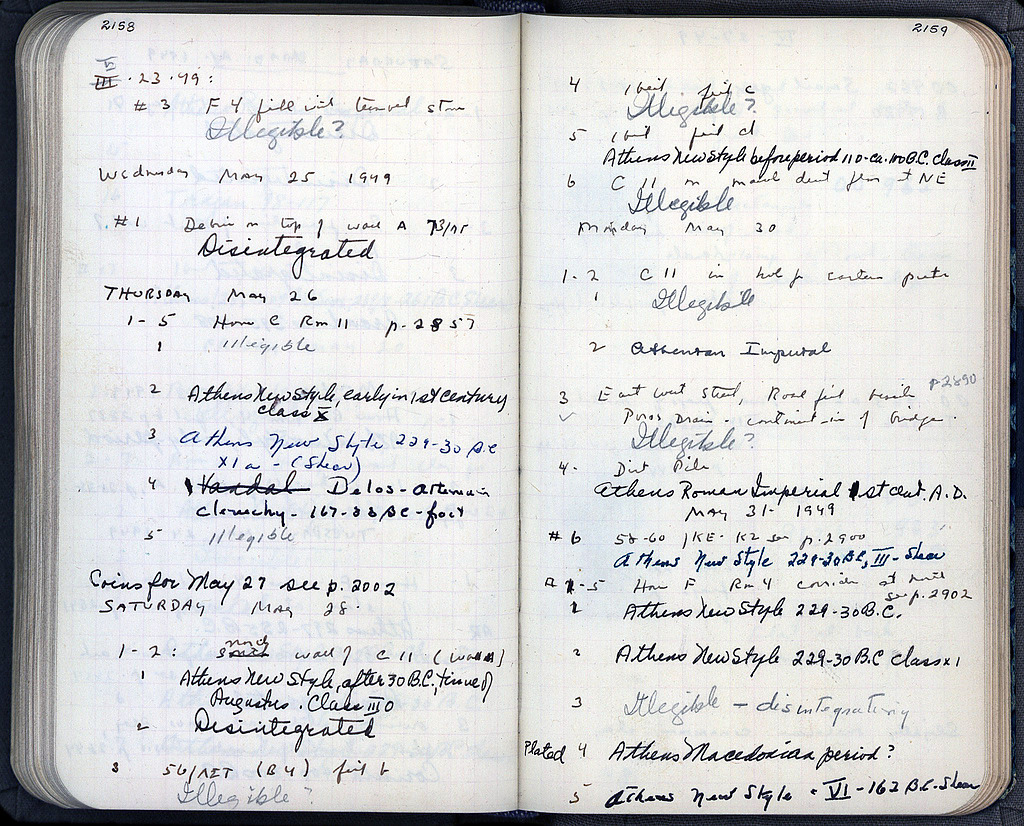 2158
V
III · 23 · 49 :
#3 F 4 fill
Illegible?
Wednesday May 25 1949
#1 Debris on top of wall A
Disintegrated
THURSDAY May 26
1-5 House C Rm 11 p. 2857
1 illegible
2 Athens New Style, early in 1st century
class X
3 Athens New Style 229-30 B.C
XI a - (Shear)
4 Vandal Delos - Athenian
Cleruchy - 167-88 BC -
5 illegible
Coins for May 27 see p. 2002
SATURDAY May 28.
north
1-2: south wall of C 11 (wall A)
1 Athens New Style, after 30 B.C., time of
Augustus. Class III O
2 Disintegrated
3 56/ (B 4)
Illegible?
2159
4
Illegible?
5
Athens New Style before period 110-ca. 100 B.C. class II
6 C 11 at NE
Illegible
Monday May 30
1-2 C 11 in hole for
1 Illegible
2 Athenian Imperial
p 2890
3 East west Street, Road fill
✓ Poros Drain - of bridge.
Illegible?
4. Dirt Pile
Athens Roman Imperial 1st cent. A.D.
MAY 31- 1949
#6 58-60 /KE-K2 see p. 2900
Athens New Style 229-30 B.C, III - Shear
1-5 House F Rm 4 corridor at
see p. 2902
1 Athens New Style 229-30 B.C.
2 Athens New Style 229-30 B.C Class XI
3 Illegible - disintegrating
Plated 4 Athens Macedonian period?
5 Athens New Style · VI - 162 B.C. Shear